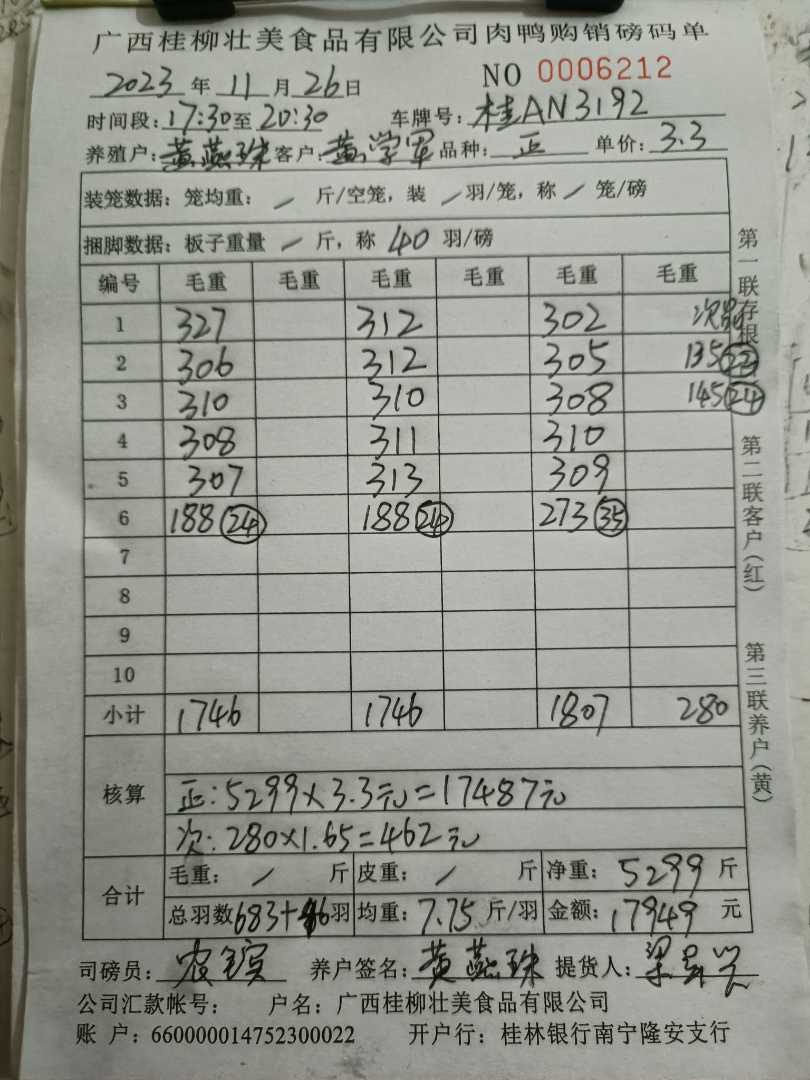 广西桂柳壮美食品有限公司肉鸭购销磅码单
2023年11月26日 NO 0006212
时间段:17:30至20:30 车牌号:桂AN3192
养殖户:黄燕珠 客户:黄学军 品种:正 单价:3.3
装笼数据:笼均重: / 斤/空笼,装 / 羽/笼,称 / 笼/磅
捆脚数据:板子重量 / 斤,称 40 羽/磅
编号 毛重 毛重 毛重 毛重 毛重 毛重
1 327 312 302
2 306 312 305 135
3 310 310 308 145 (24)
4 308 311 310
5 307 313 309
6 188 (24) 188 (24) 273 (35)
7
8
9
10
小计 1746 1746 1807 280
核算
正:5299×3.3元=17487元
次:280×1.65=462元
合计
毛重: / 斤 皮重: / 斤 净重:5299斤
总羽数683+46羽 均重:7.75斤/羽 金额:17949元
司磅员: 养户签名:黄燕珠 提货人:
公司汇款帐号: 户名:广西桂柳壮美食品有限公司
账 户:660000014752300022 开户行:桂林银行南宁隆安支行
第一联存根
第二联客户(红)
第三联养户(黄)